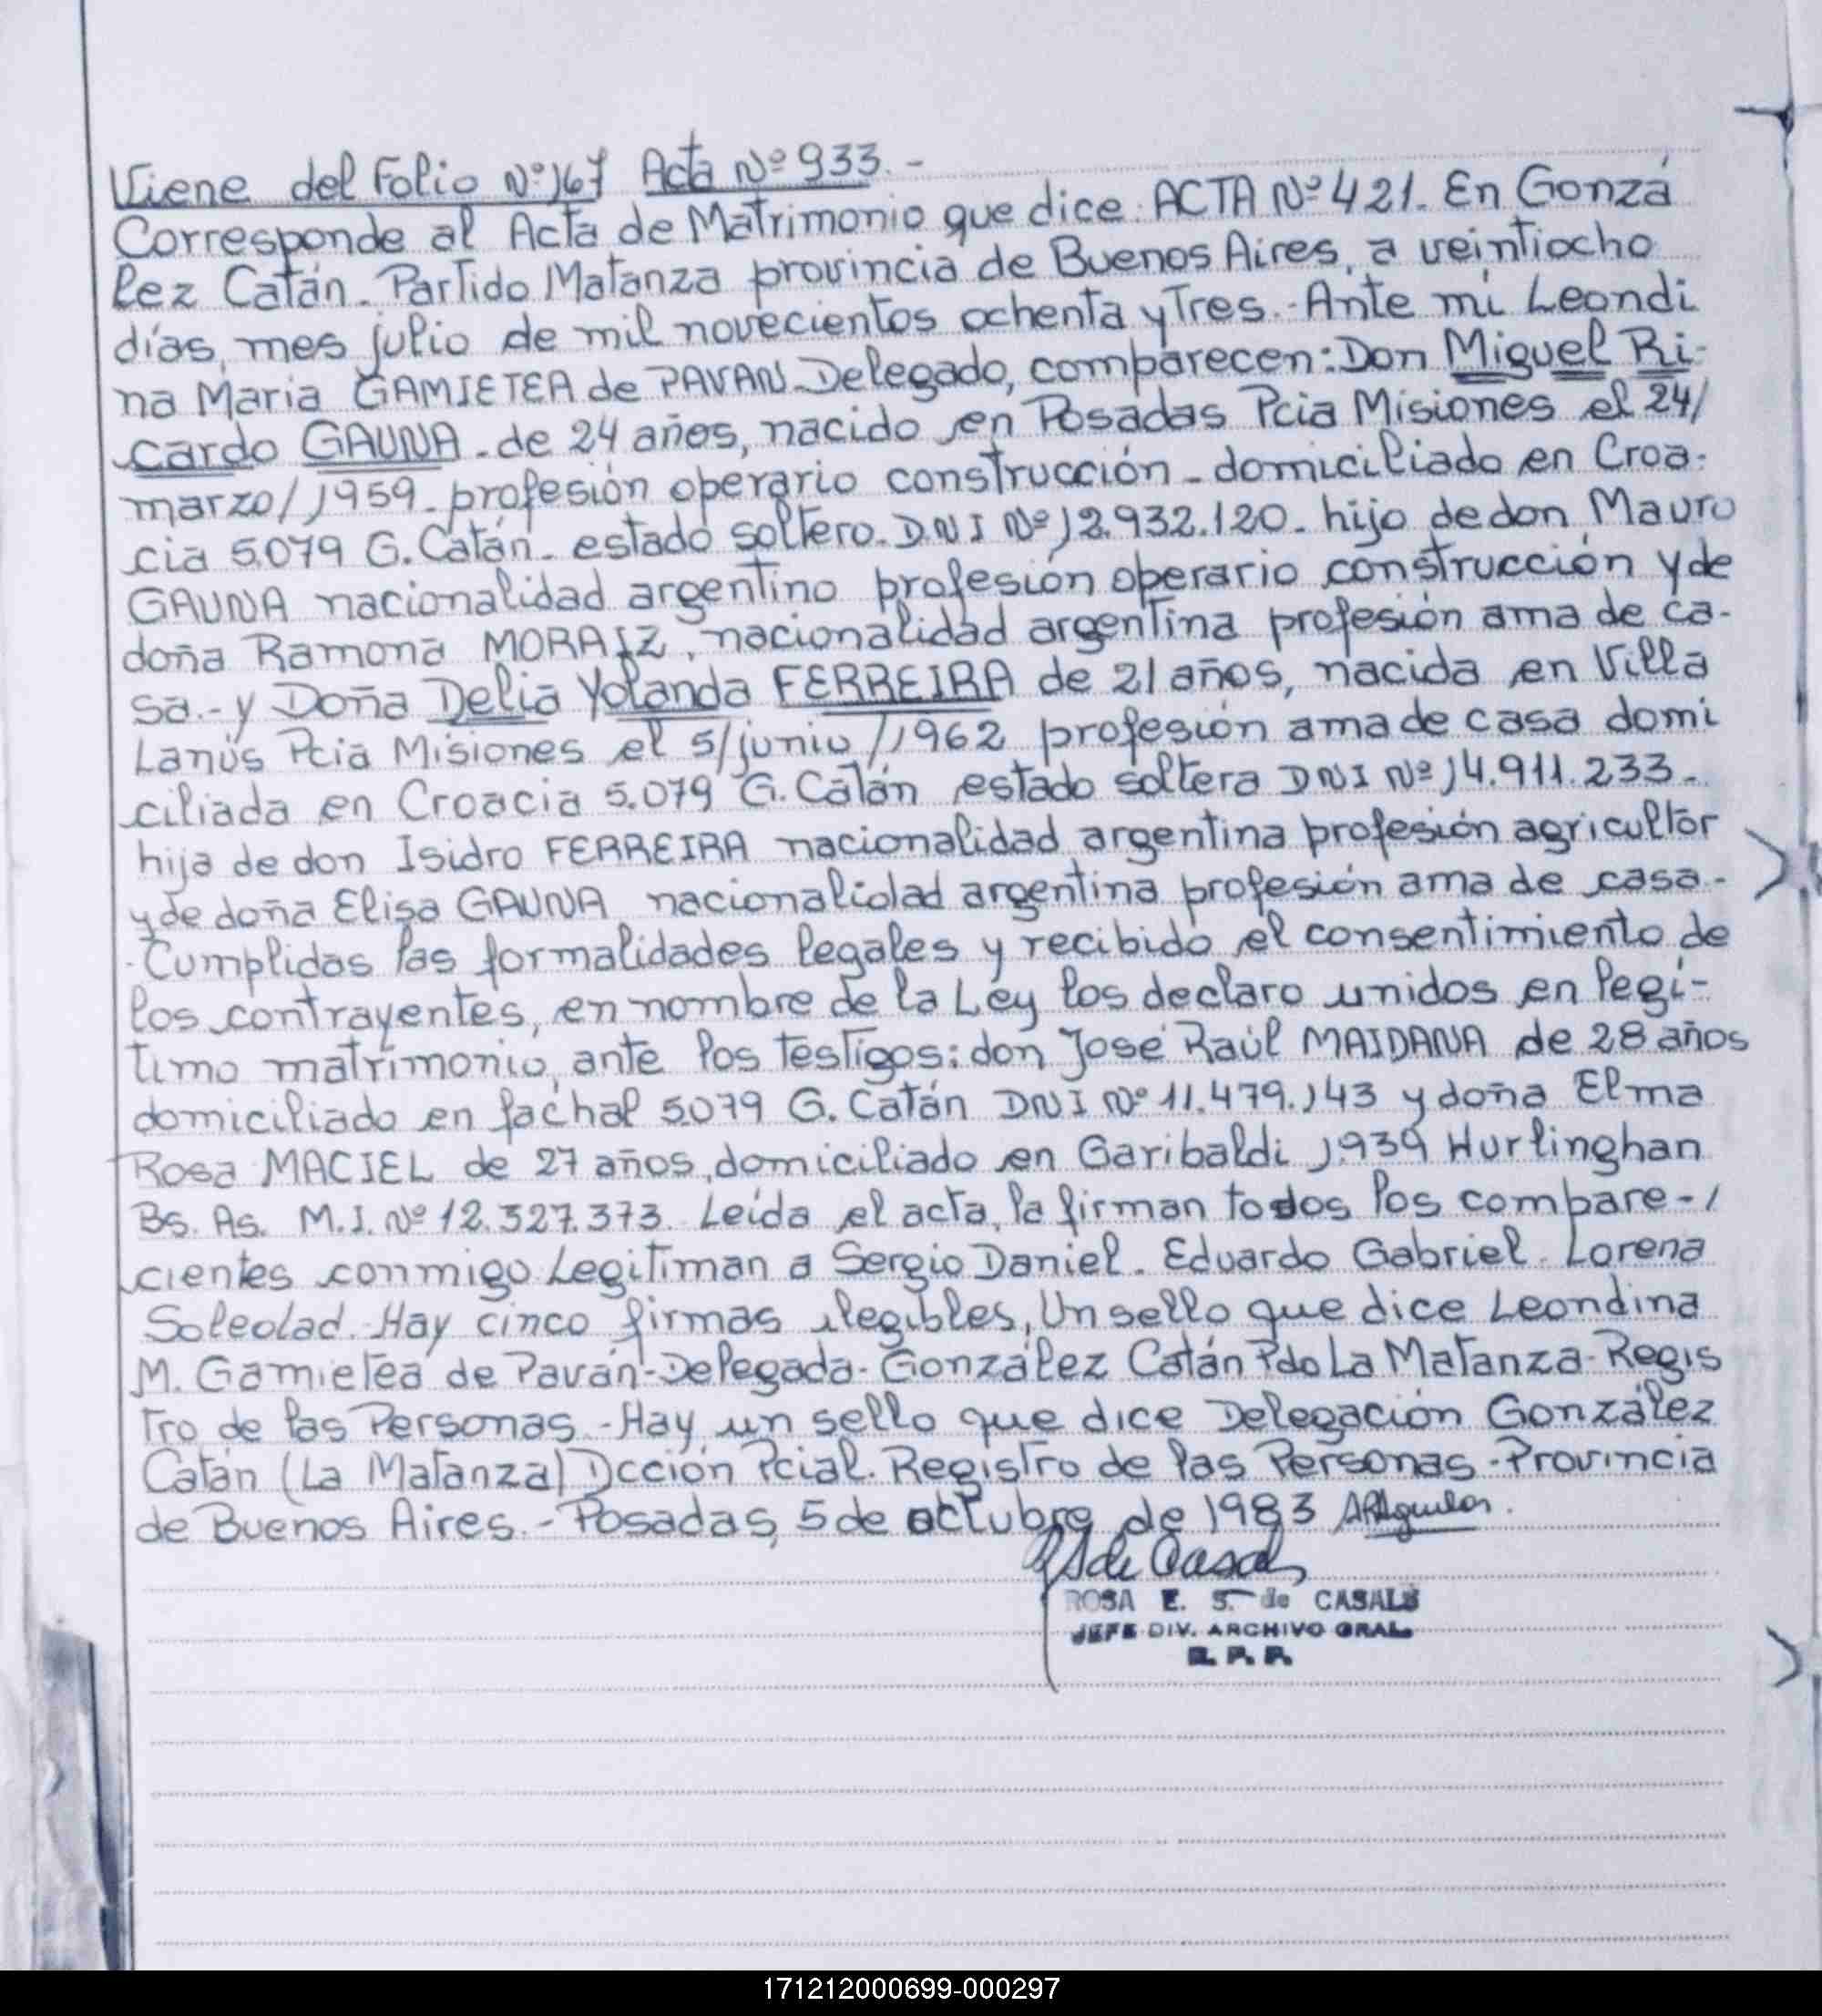 Viene del Folio Nº 167 Acta Nº 933.-
Corresponde al Acta de Matrimonio que dice. ACTA Nº 421. En Gonzá
lez Catán. Partido Matanza provincia de Buenos Aires, a veintiocho
días, mes julio de mil novecientos ochenta y Tres.- Ante mi Leondi
na Maria GAMIETEA de PAVAN. Delegado, comparecen: Don Miguel Ri-
cardo GAUNA. de 24 años, nacido en Posadas Pcia Misiones el 24/
marzo/1959. profesión operario construcción - domiciliado en Croa-
cia 5.079 G. Catán. estado soltero. D.N I Nº 12.932.120. hijo de don Mauro
GAUNA nacionalidad argentino profesión operario construcción y de
doña Ramona MORAIZ, nacionalidad argentina profesión ama de ca-
sa.- y Doña Delia Yolanda FERREIRA de 21 años, nacida en Villa
Lanús Pcia Misiones el 5/junio/1962 profesión ama de casa domi
ciliada en Croacia 5.079 G. Catán estado soltera DNI Nº 14.911.233.
hija de don Isidro FERREIRA nacionalidad argentina profesión agricultor
y de doña Elisa GAUNA nacionalidad argentina profesión ama de casa.
- Cumplidas las formalidades legales y recibido el consentimiento de
los contrayentes, en nombre de la Ley los declaro unidos en legi-
timo matrimonio, ante los testigos: don José Raúl MAIDANA de 28 años
domiciliado en Jachal 5.079 G. Catán DNI Nº 11.479.143 y doña Elma
Rosa MACIEL de 27 años, domiciliado en Garibaldi 1.939 Hurlinghan
Bs. As. M.I. Nº 12.327.373. Leída el acta, la firman todos los compare-/
cientes conmigo Legitiman a Sergio Daniel. Eduardo Gabriel. Lorena
Soledad. Hay cinco firmas ilegibles, Un sello que dice Leondina
M. Gamietea de Paván-Delegada-González Catán Pdo La Matanza-Regis
tro de las Personas.-Hay un sello que dice Delegación González
Catán (La Matanza) Dcción Pcial. Registro de las Personas-Provincia
de Buenos Aires.-Posadas, 5 de octubre de 1983 ARAguilar.
RSde Casals
ROSA E. S. de CASALS
JEFE DIV. ARCHIVO GRAL.
R. P. P.
171212000699-000297